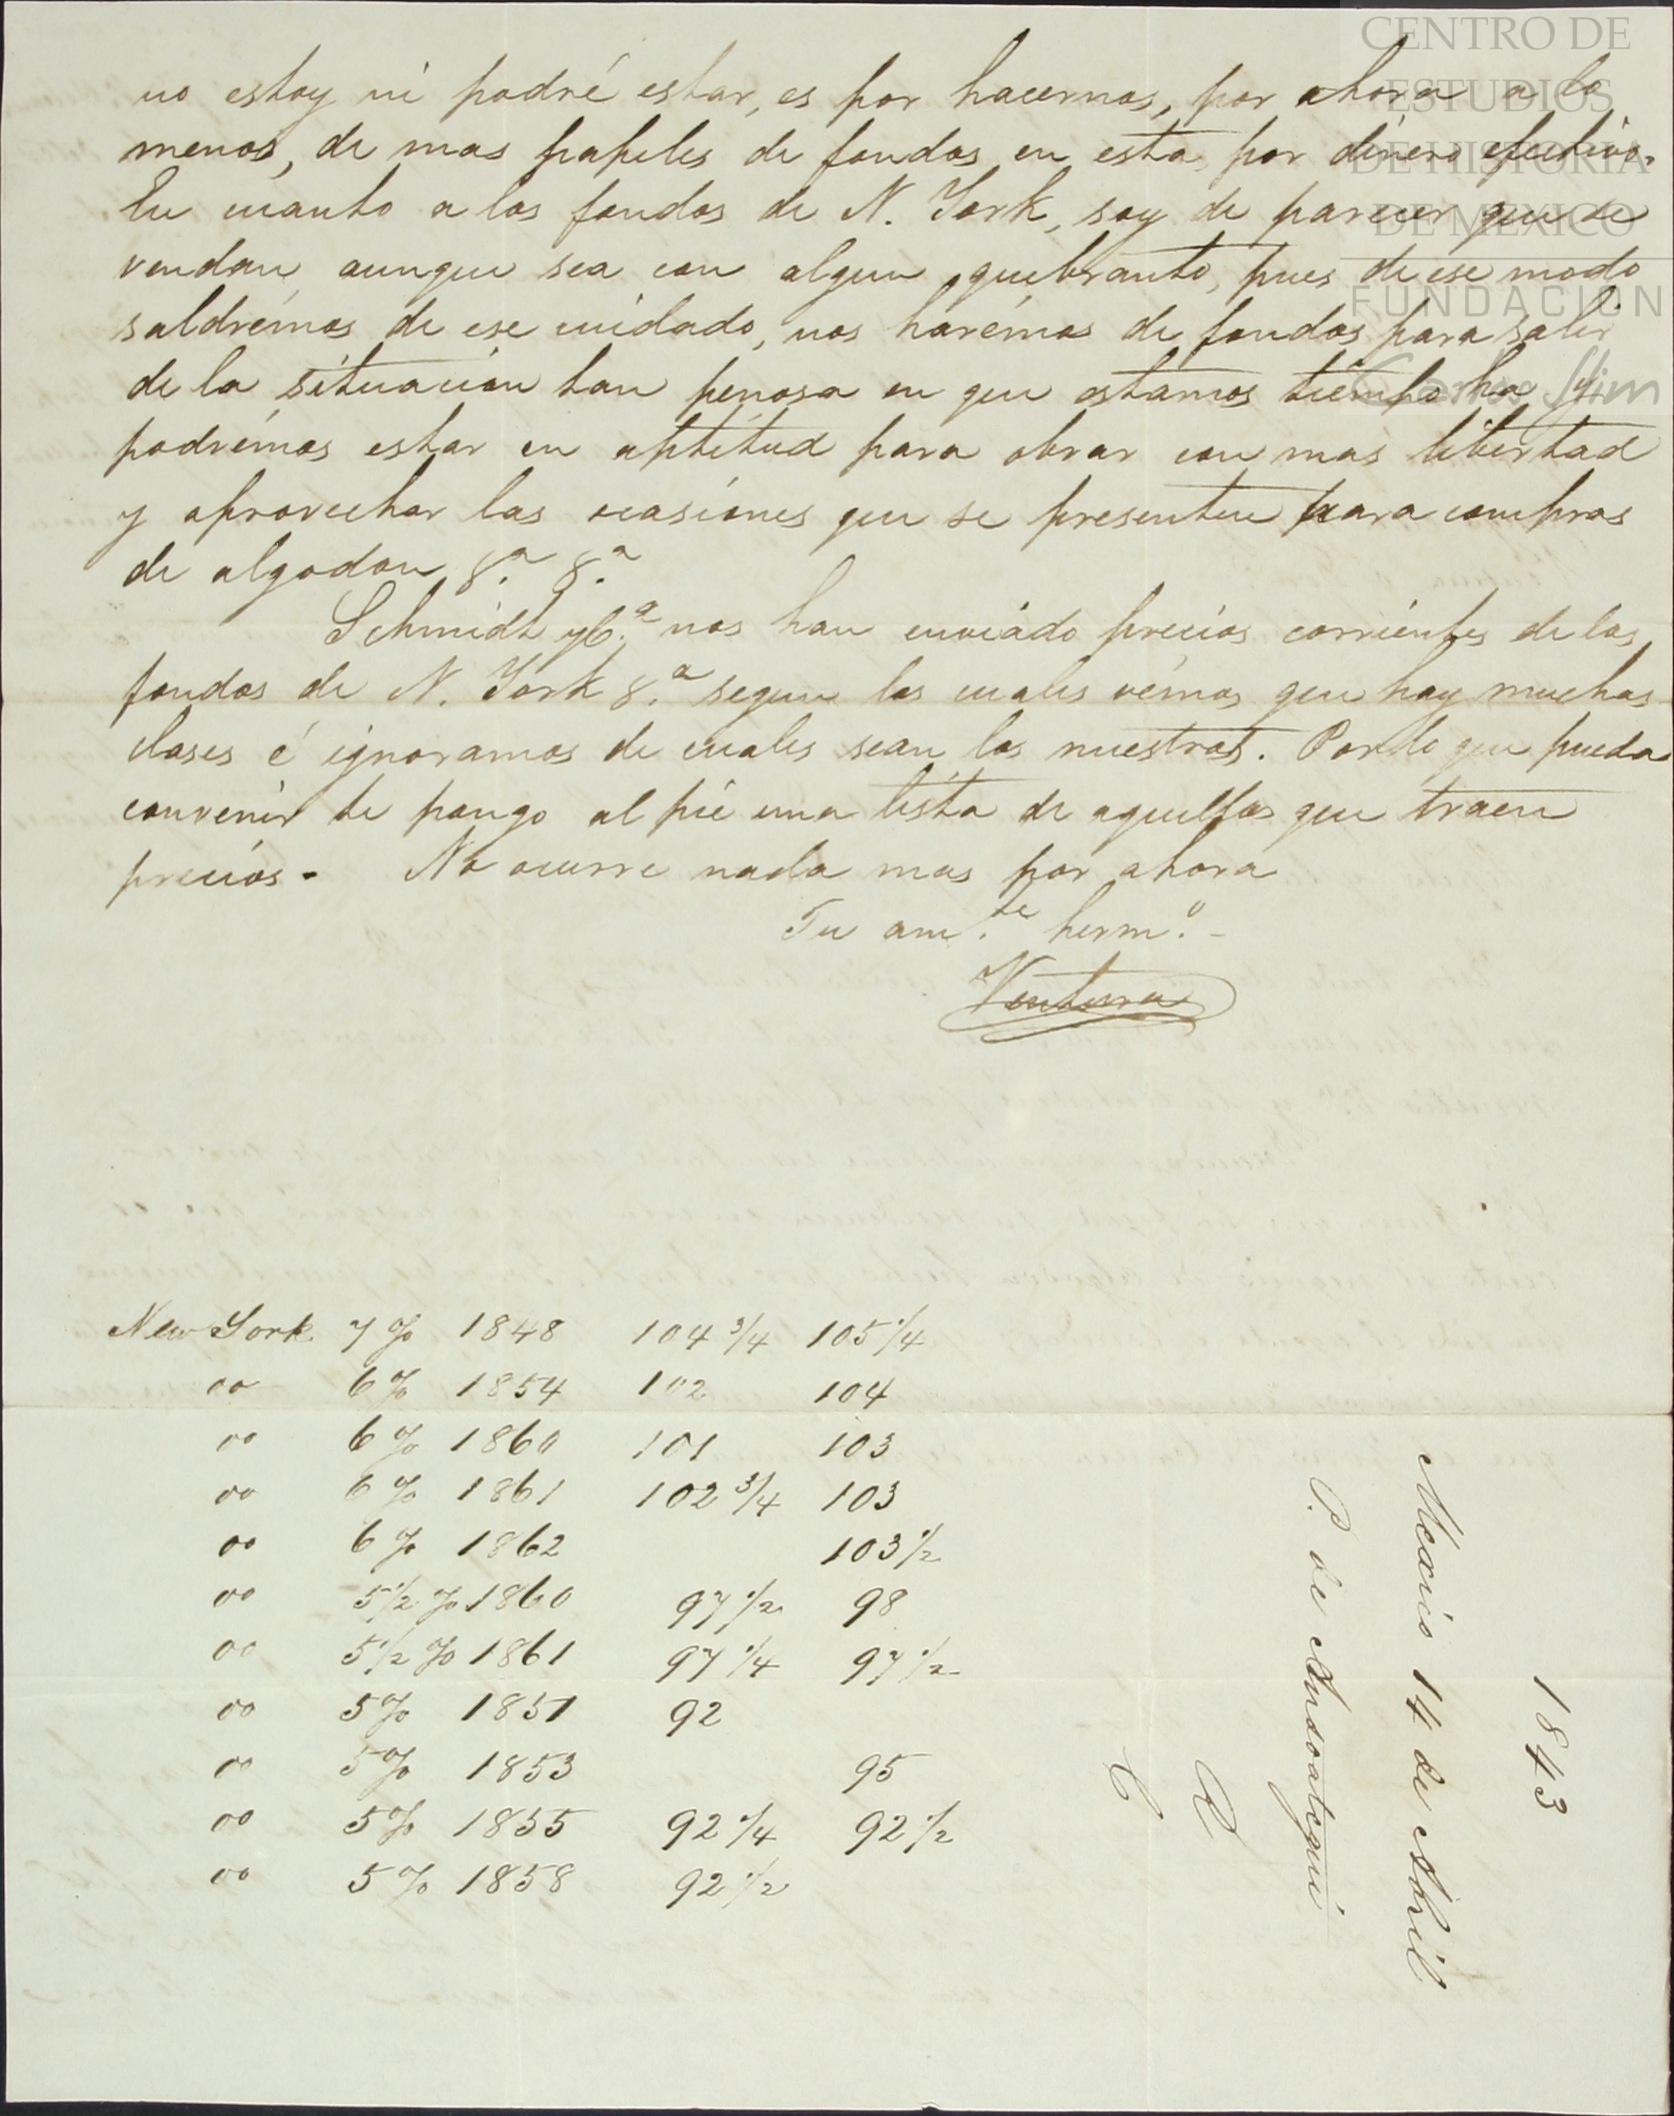 no estoy ni podré estar, es por hacernos, por ahora a lo
menos, de mas papeles de fondos en esta por dinero efectivo.
En cuanto a los fondos de N. York, soy de parecer que se
vendan aunque sea con algun quebranto, pues de ese modo
saldrémos de ese cuidado, nos harémos de fondos para salir
de la situacion tan penosa en que estamos tiempo ha y
podrémos estar en aptitud para obrar con mas libertad
y aprovechar las ocasiones que se presenten para compras
de algodon &.ª &.ª
Schmidt y C.ª nos han enviado precios corrientes de los
fondos de N. York &.ª segun los cuales vémos que hay muchas
clases é ignoramos de cuales sean los nuestros. Por lo que pueda
convenir te pongo al pié una lista de aquellos que traen
precios. No ocurre nada mas por ahora
Tu am.te herm.o
Ventura
New York 7 % 1848 104 3/4 105 1/4
oo 6 % 1854 102 104
oo 6 % 1860 101 103
oo 6 % 1861 102 3/4 103
oo 6 % 1862 103 1/2
oo 5 1/2 % 1860 97 1/2 98
oo 5 1/2 % 1861 97 1/4 97 1/2
oo 5 % 1851 92
oo 5 % 1853 95
oo 5 % 1855 92 1/4 92 1/2
oo 5 % 1858 92 1/2
1843
Mexico 14 de Abril
P. de Ansoategui
R
C
CENTRO DE
ESTUDIOS
DE HISTORIA
DE MEXICO
FUNDACION
Carlos Slim